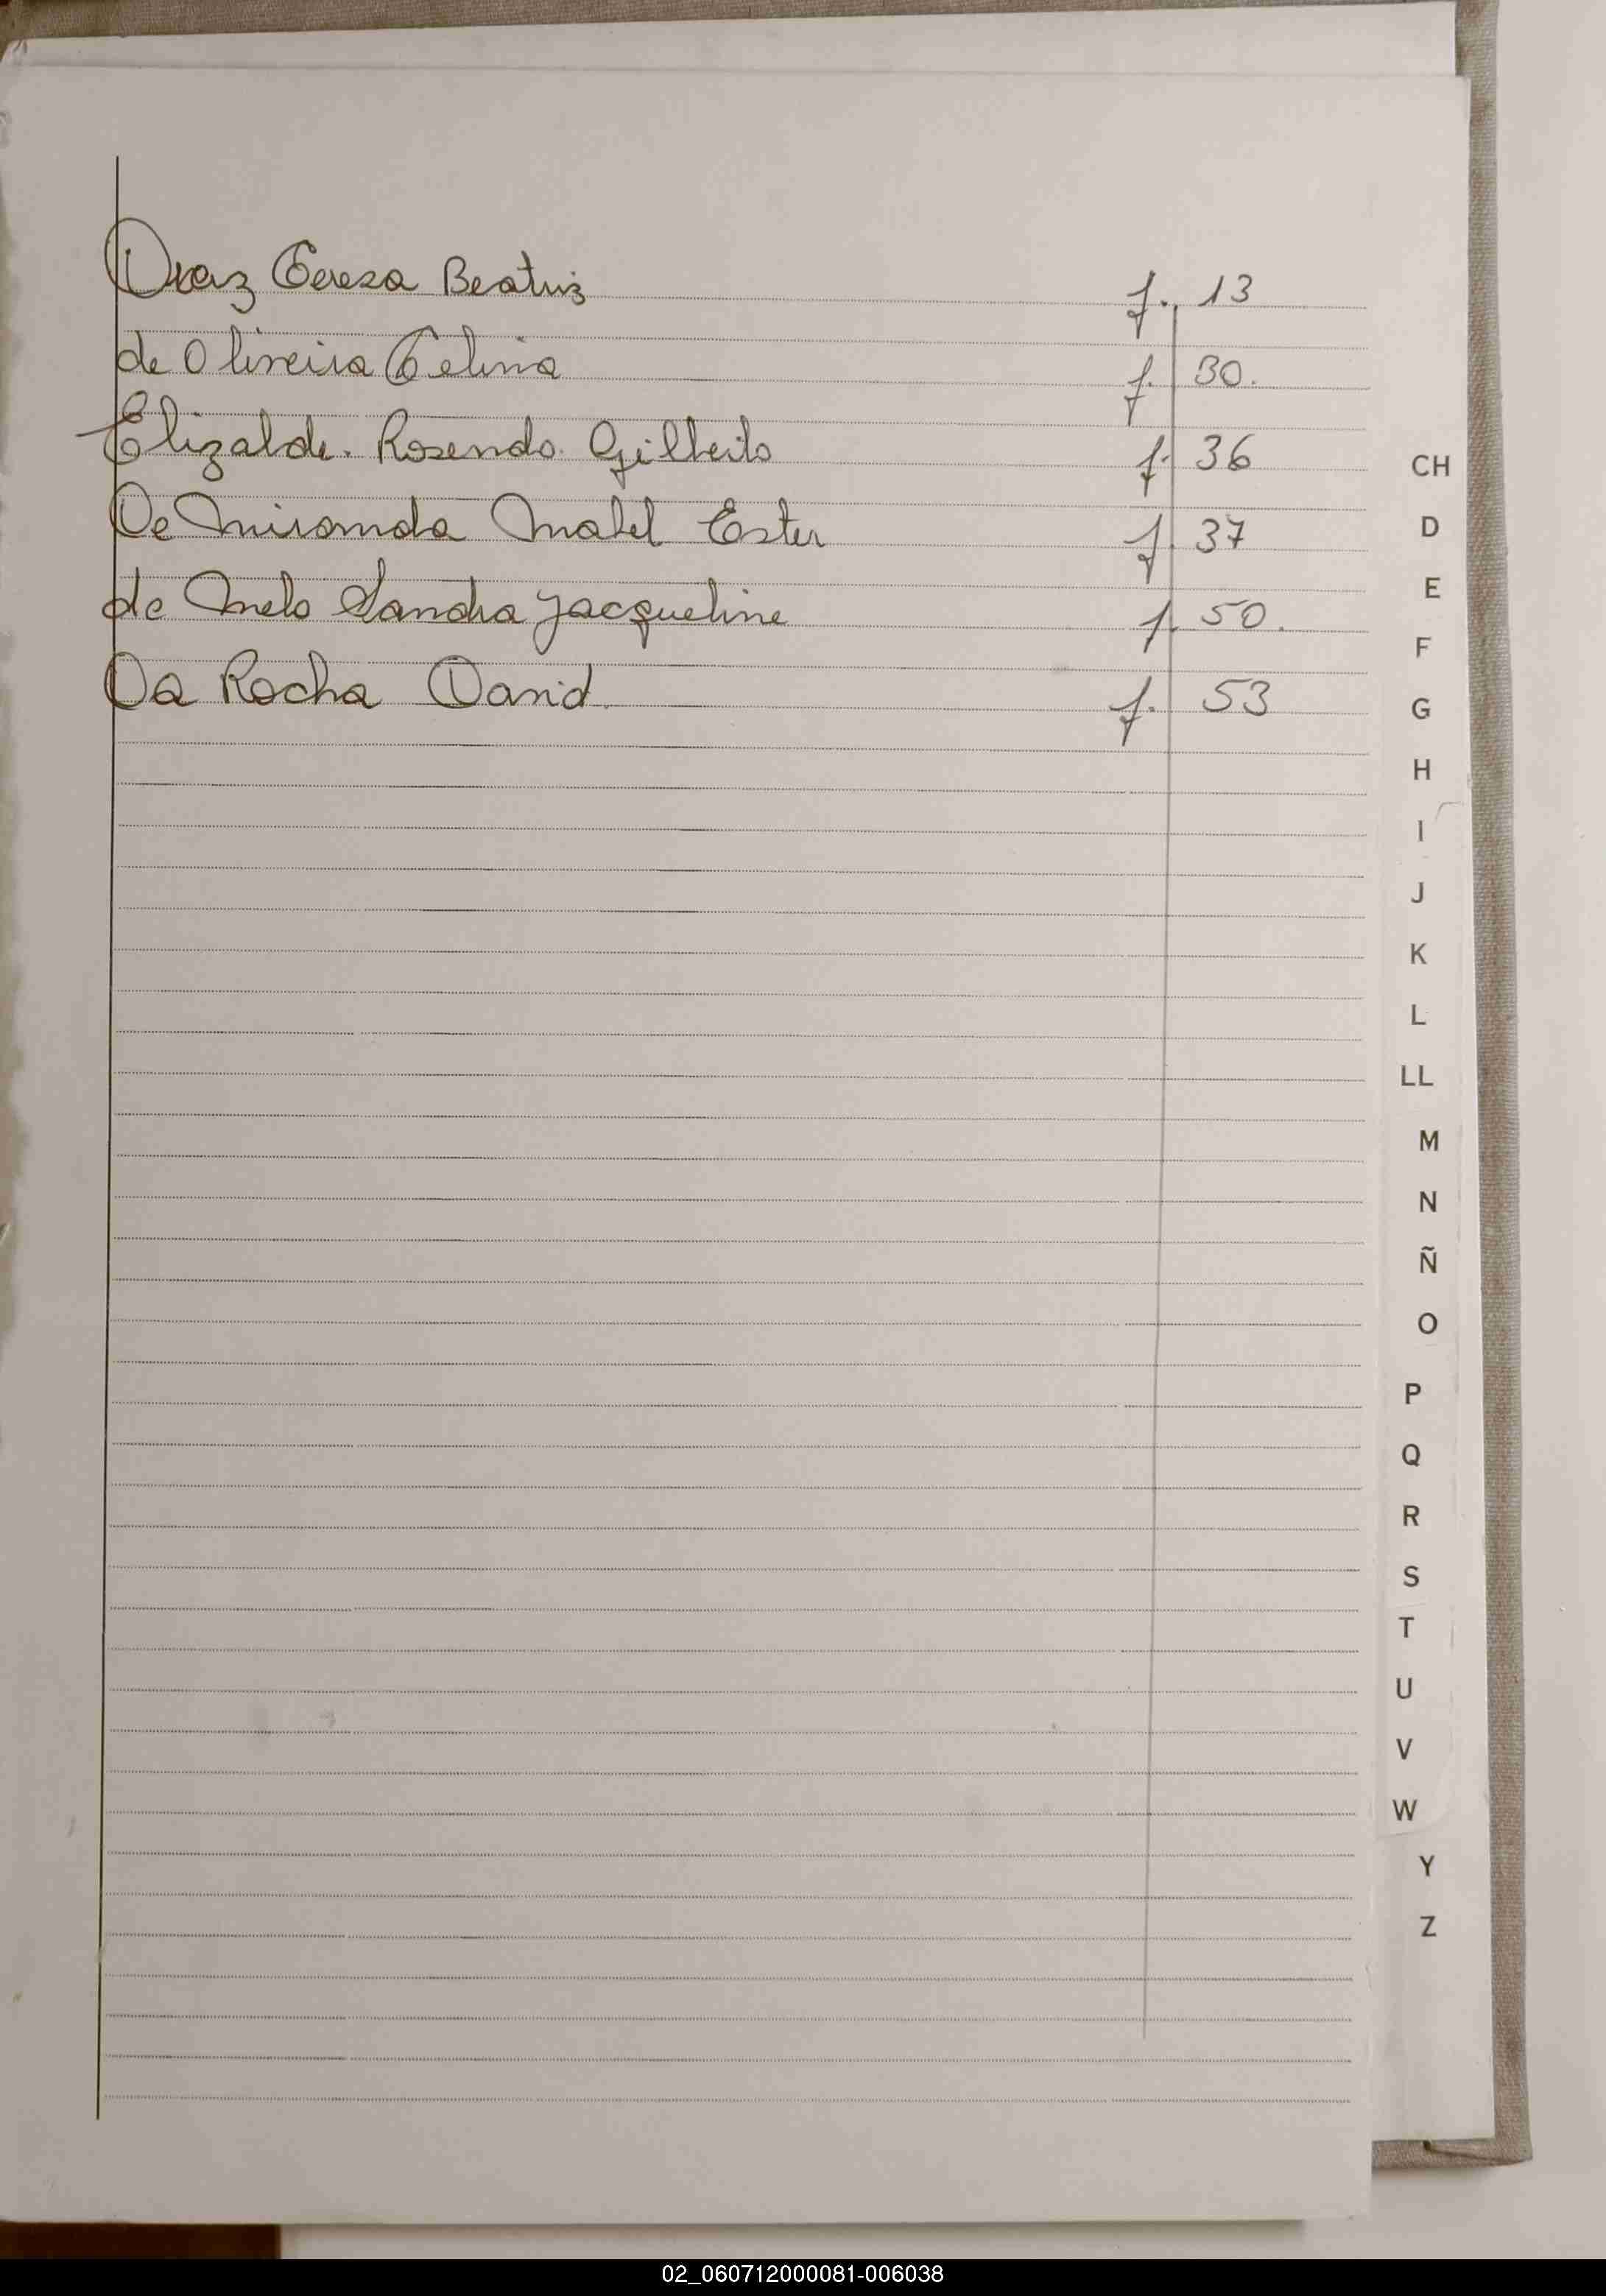 Diaz Teresa Beatriz f. 13
de Oliveira Telma f. 30.
Elizalde. Rosendo. Gilberto f. 36
De Miranda Mabel Ester f. 37
de Melo Sandra Jacqueline f. 50.
Da Rocha David. f. 53
CH
D
E
F
G
H
I
J
K
L
LL
M
N
Ñ
O
P
Q
R
S
T
U
V
W
Y
Z
02_060712000081-006038